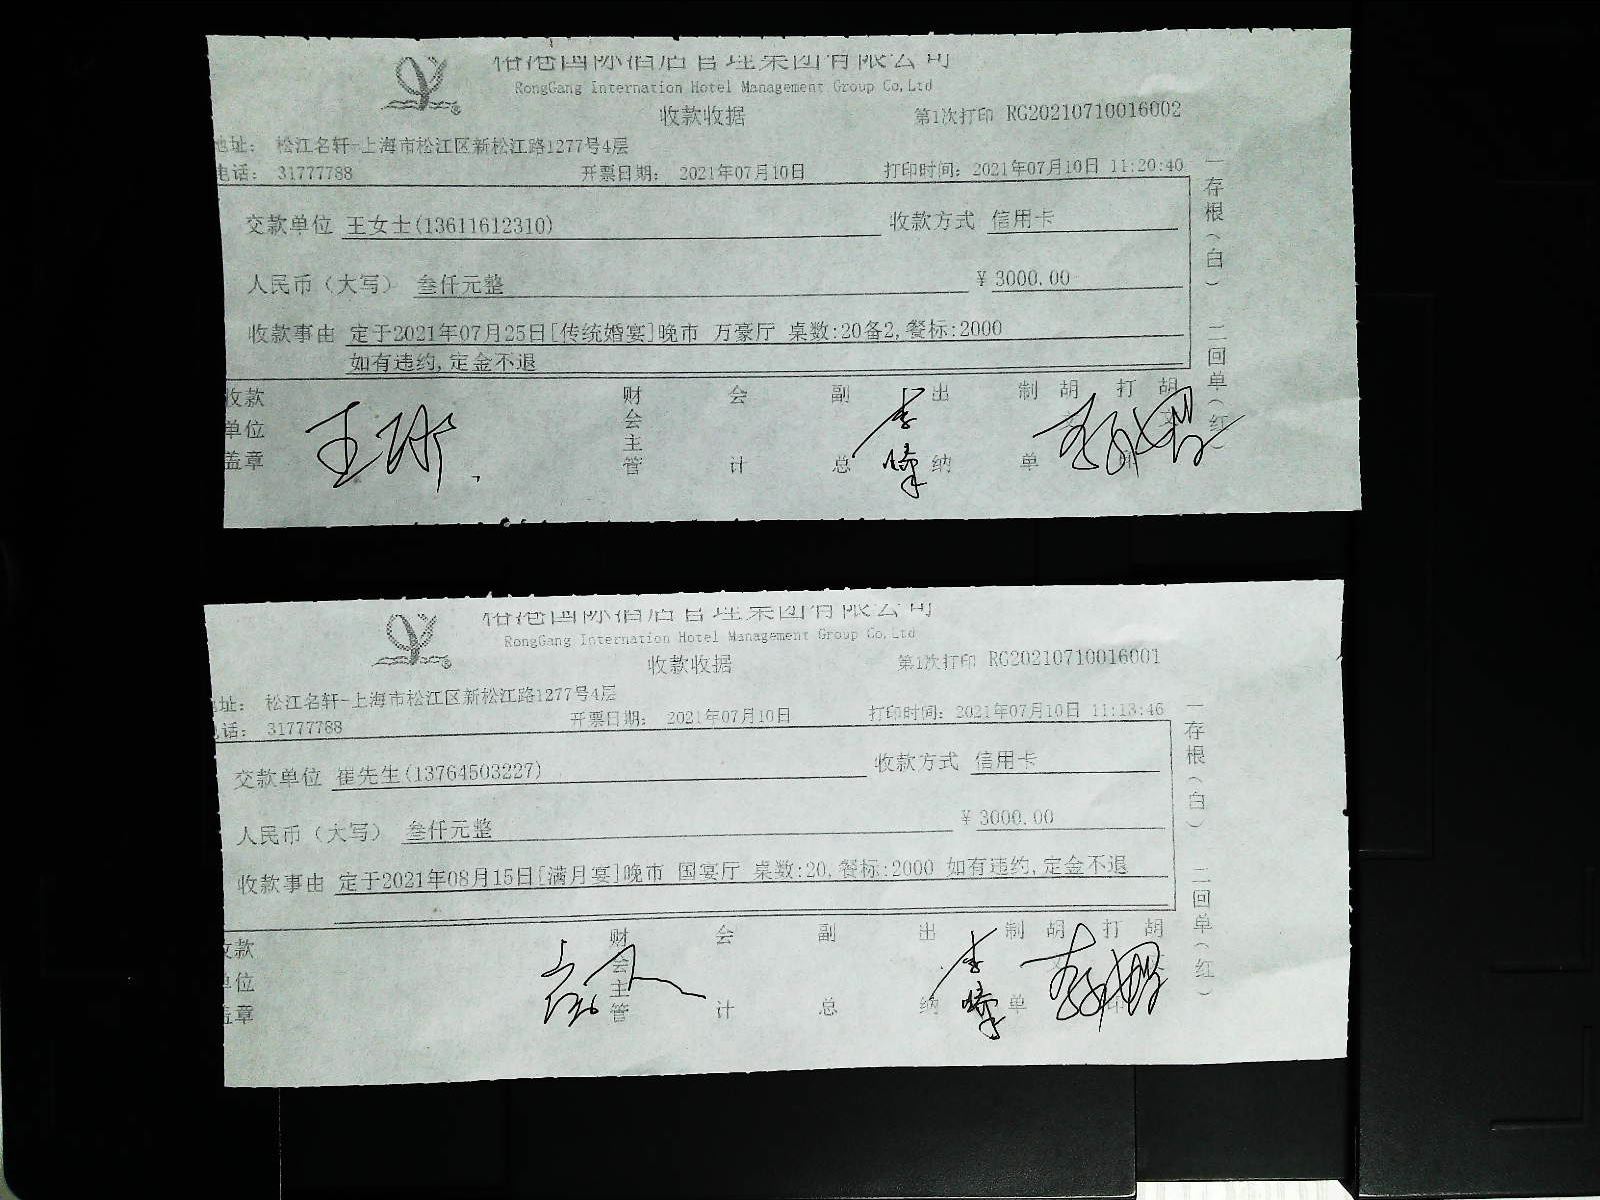 国际酒店管理集团有限公司
RongGang Internation Hotel Management Group Co,Ltd
收款收据 第1次打印 RG20210710016002
地址: 松江名轩-上海市松江区新松江路1277号4层
电话: 31777788 开票日期: 2021年07月10日 打印时间: 2021年07月10日 11:20:40
交款单位 王女士(13611612310) 收款方式 信用卡
人民币(大写) 叁仟元整 ¥ 3000.00
收款事由 定于2021年07月25日[传统婚宴]晚市 万豪厅 桌数:20备2,餐标:2000
如有违约,定金不退
收款单位盖章 财会主管 会计 副总 出纳 制单 胡 打印 胡
一存根(白) 二回单(红)
国际酒店管理集团有限公司
RongGang Internation Hotel Management Group Co,Ltd
收款收据 第1次打印 RG20210710016001
址: 松江名轩-上海市松江区新松江路1277号4层
话: 31777788 开票日期: 2021年07月10日 打印时间: 2021年07月10日 11:13:46
交款单位 崔先生(13764503227) 收款方式 信用卡
人民币(大写) 叁仟元整 ¥ 3000.00
收款事由 定于2021年08月15日[满月宴]晚市 国宴厅 桌数:20,餐标:2000 如有违约,定金不退
收款单位盖章 财会主管 会计 副总 出纳 制单 胡 打印 胡
一存根(白) 二回单(红)